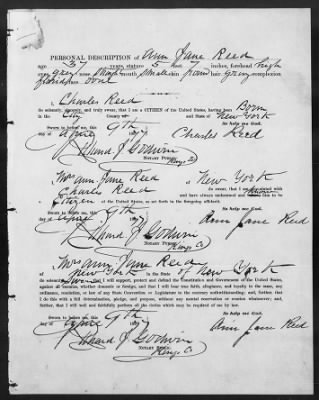 PERSONAL DESCRIPTION of Ann Jane Reed
age 37 years, stature 5 feet inches, forehead high
eyes grey nose sharp mouth small skin hair grey complexion
florid face oval
I, Charles Reed
do solemnly, sincerely, and truly swear, that I am a CITIZEN of the United States, having been Born
in the City County of and State of New York
So help me God.
Sworn to before me, this 9th
day of April 186 Charles Reed
Richard J Godwin
NOTARY PUBLIC.
Kings Co
I, Mrs Ann Jane Reed of New York
do swear, that I am acquainted with
Charles Reed and have always understood and believe him to
Citizen of the United States, as set forth in the foregoing affidavit.
So help me God.
Sworn to before me, this 9th
day of April 186 Ann Jane Reed
Richard J Godwin
NOTARY PUBLIC.
Kings Co
I, Mrs Ann Jane Reed
of New York in the State of New York
do solemnly Swear that I will support, protect and defend the Constitution and Government of the United States,
against all enemies, whether domestic or foreign, and that I will bear true faith, allegiance, and loyalty to the same, any
ordinance, resolution, or law of any State Convention or Legislature to the contrary notwithstanding; and, further, that
I do this with a full determination, pledge, and purpose, without any mental reservation or evasion whatsoever; and,
further, that I will well and faithfully perform all the duties which may be required of me by law.
So help me God.
Sworn to before me, this 9th
day of April 186 Ann Jane Reed
Richard J Godwin
NOTARY PUBLIC.
Kings Co